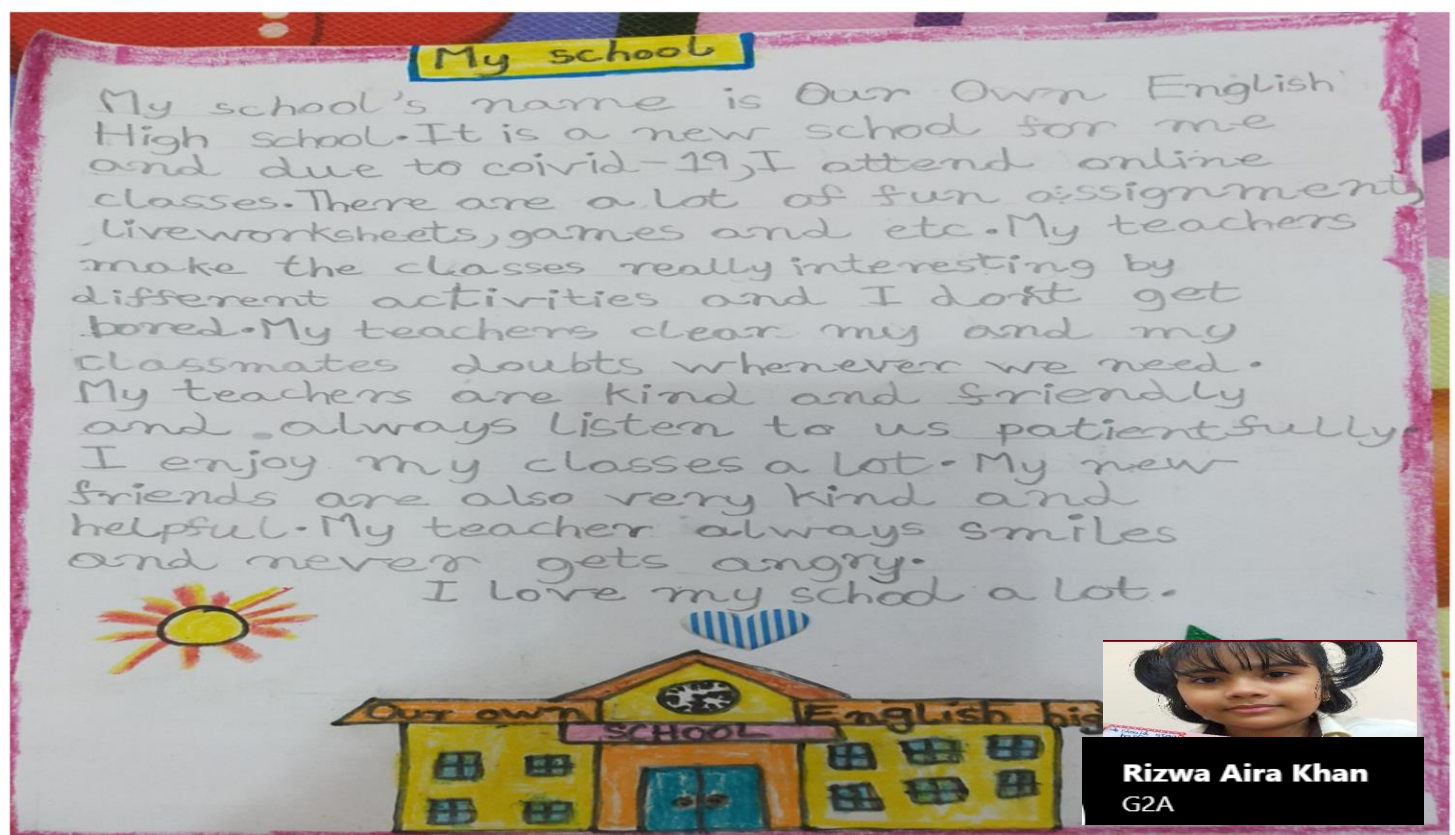 My school
My school's name is Our Own English
High school. It is a new school for me
and due to coivid-19, I attend online
classes. There are a lot of fun assignment,
liveworksheets, games and etc. My teachers
make the classes really interesting by
different activities and I don't get
bored. My teachers clear my and my
classmates doubts whenever we need.
My teachers are kind and friendly
and always listen to us patientfully.
I enjoy my classes a lot. My new
friends are also very kind and
helpful. My teacher always smiles
and never gets angry.
I love my school a lot.
Our own English hig
SCHOOL
Rizwa Aira Khan
G2A